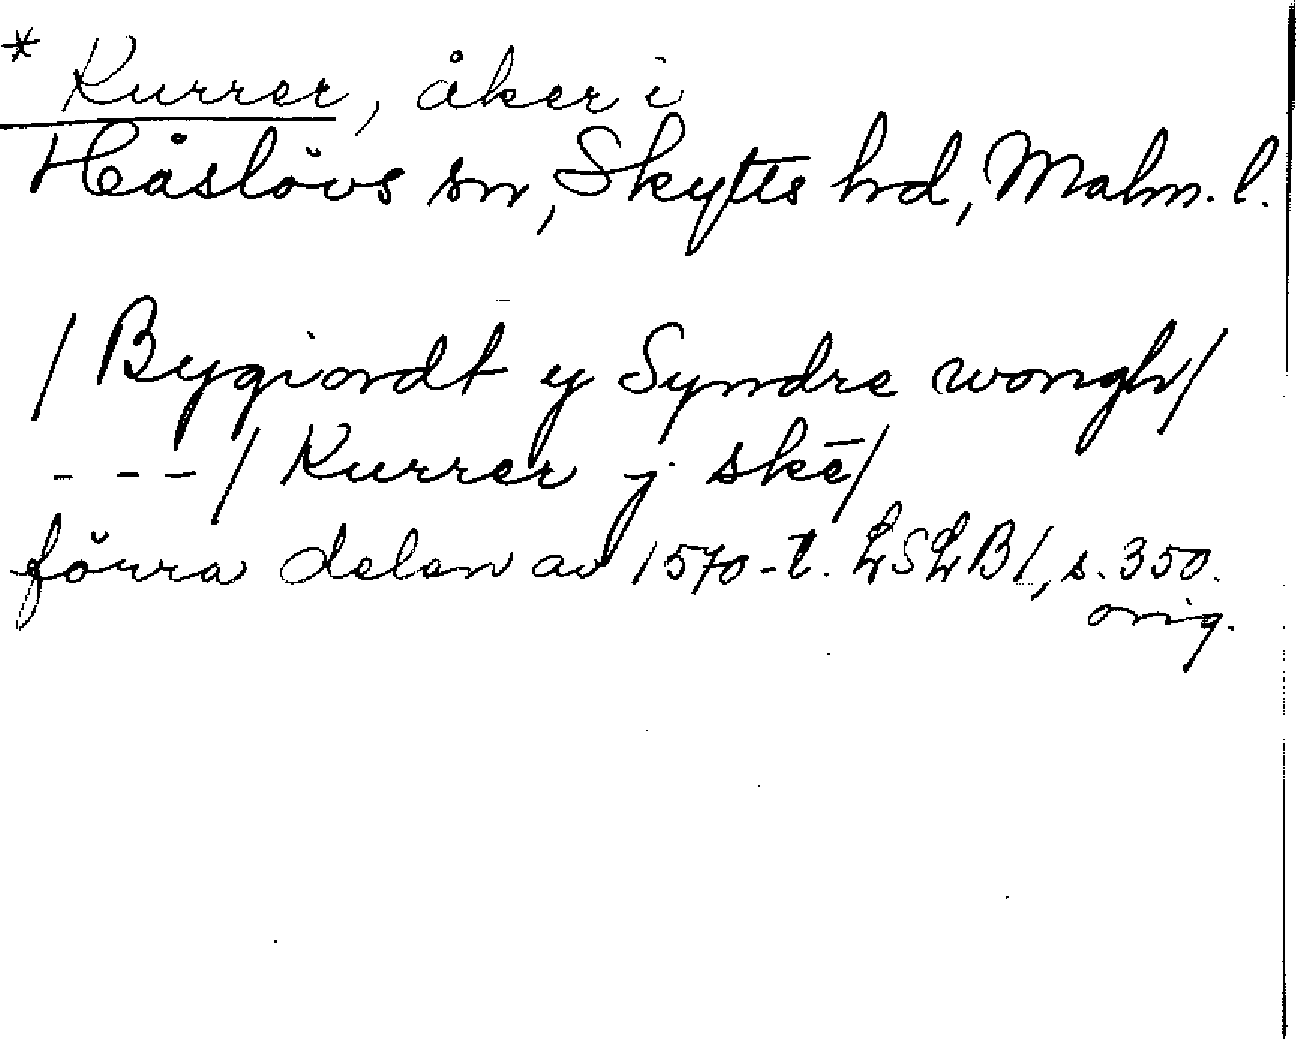 * Kurrer, åker i
Håslövs sn, Skytts hd, Malm. l.
/ Bygiordt y Syndre wongh/
- - - / Kurrer j skē/
förra delen av 1570-t. LSLB1, s. 350.
orig.